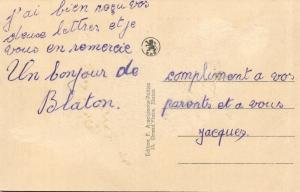 j'ai bien reçu vos
deux lettres et je
vous en remercie
Un bonjour de
Blaton.
compliment a vos
parents et a vous
jacques